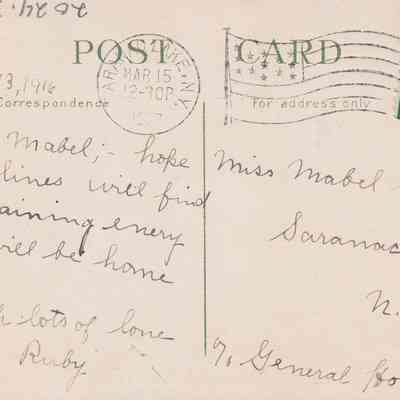 2024.
POST CARD
MAR 15
12-30P
3, 1916
Correspondence
For address only
Mabel;- hope
lines will find
aining enery
will be home
h lots of love
Ruby
Miss Mabel
Saranac
N.
c/o General Ho